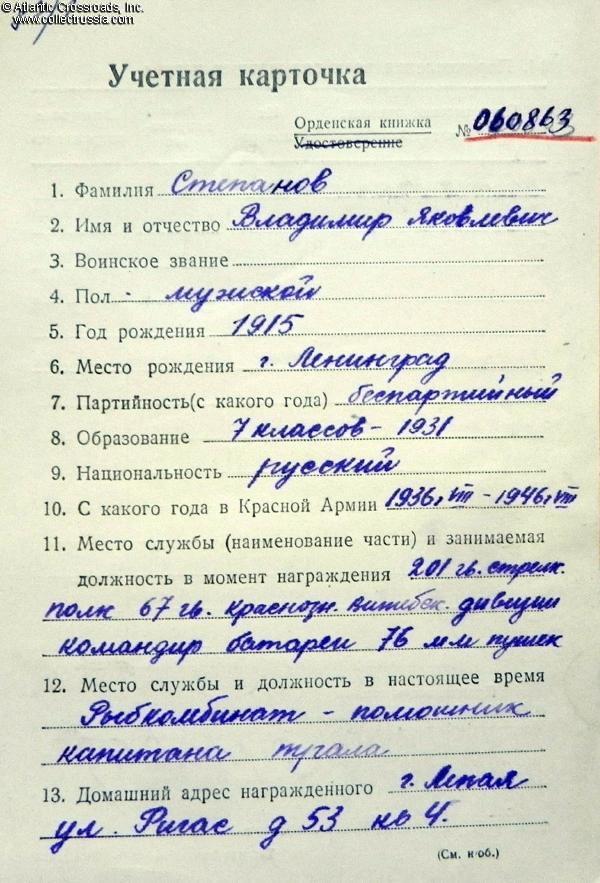 © Atlantic Crossroads, Inc.
www.collectrussia.com
Учетная карточка
Орденская книжка
Удостоверение
№ 060863
1. Фамилия Степанов
2. Имя и отчество Владимир Яковлевич
3. Воинское звание
4. Пол мужской
5. Год рождения 1915
6. Место рождения г. Ленинград
7. Партийность (с какого года) беспартийный
8. Образование 7 классов - 1931
9. Национальность русский
10. С какого года в Красной Армии 1936, VIII - 1946, VIII
11. Место службы (наименование части) и занимаемая
должность в момент награждения 201 гв. стрелк.
полк 67 гв. краснозн. Витебск. дивизии
командир батареи 76 мм пушек
12. Место службы и должность в настоящее время
Рыбкомбинат - помошник
капитана трала
13. Домашний адрес награжденного г. Лепая
ул. Ригас д 53 кв 4.
(См. н/об.)